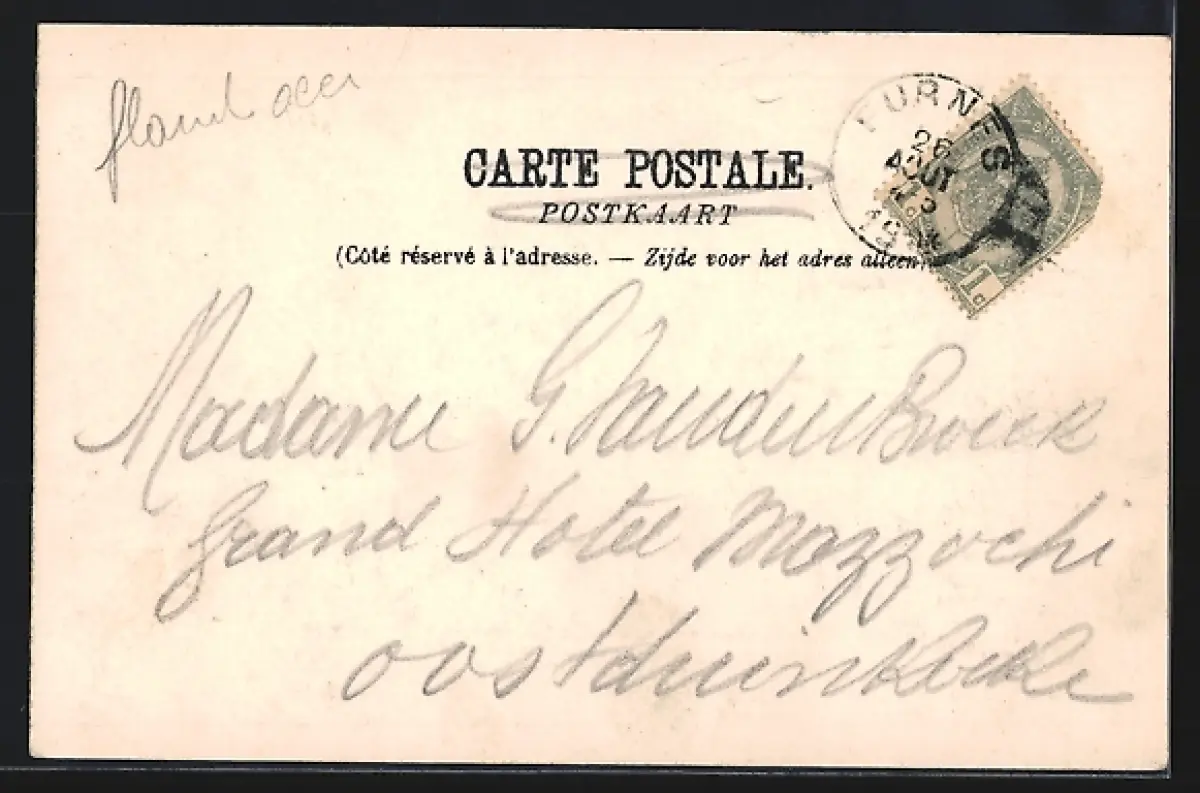 CARTE POSTALE.
POSTKAART
(Côté réservé à l'adresse. — Zijde voor het adres alleen)
FURNES
26
AOUT
19
1c
Madame G. Vanden Broeck
Grand Hotel Mozzochi
oostduinkerke